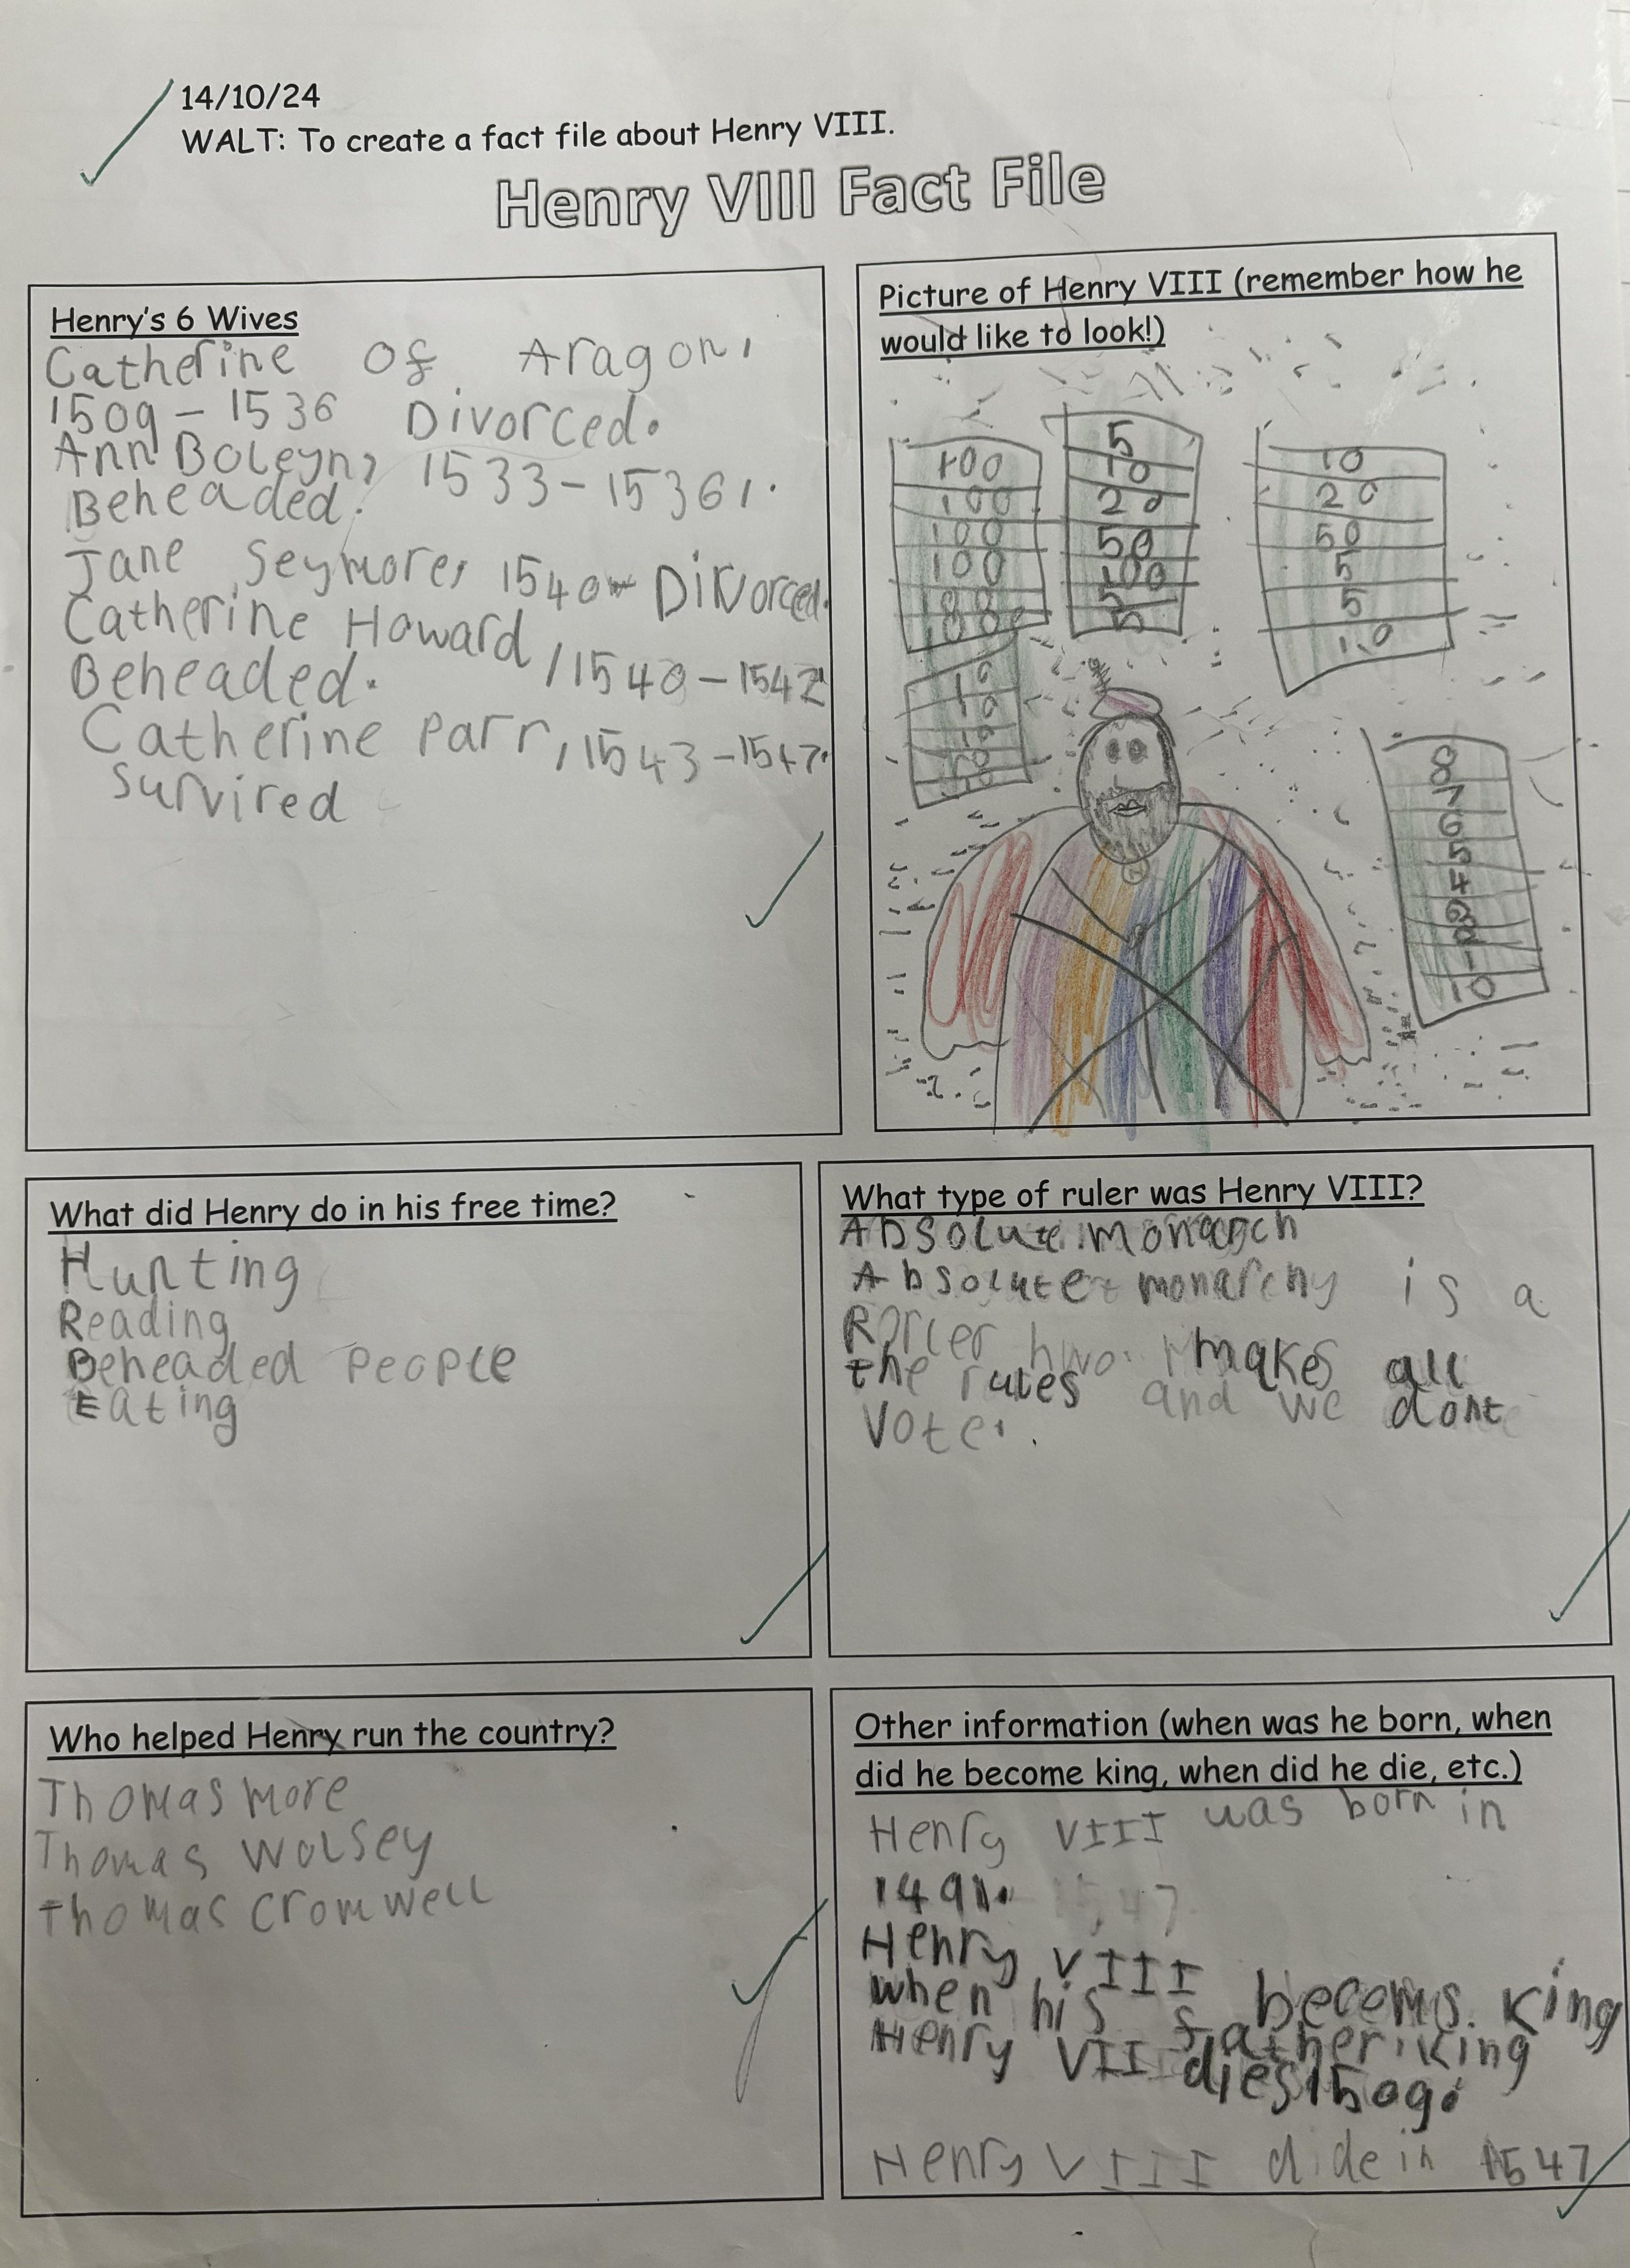 14/10/24
WALT: To create a fact file about Henry VIII.
Henry VIII Fact File
Henry's 6 Wives
Catherine of Aragon,
1509 - 1536 Divorced.
Ann Boleyn, 1533 - 1536,.
Beheaded.
Jane Seymore, 1540 Divorced.
Catherine Howard, 1540 - 1542
Beheaded.
Catherine Parr, 1543 - 1547.
survired
Picture of Henry VIII (remember how he
would like to look!)
100
100
100
100
5
10
20
50
100
5
5
10
20
50
5
5
10
10
10
10
8
8
7
6
5
4
10
What did Henry do in his free time?
Hunting
Reading
Beheaded People
Eating
What type of ruler was Henry VIII?
Absolute monarch
Absolute monarchy is a
hwo makes all
the rules and we dont
vote.
Who helped Henry run the country?
Thomas more
Thomas Wolsey
Thomas cromwell
Other information (when was he born, when
did he become king, when did he die, etc.)
Henry VIII was born in
1491.
Henry VIII becoms king
when his father, king
Henry VII dies 1509.
Henry VIII dide in 1547